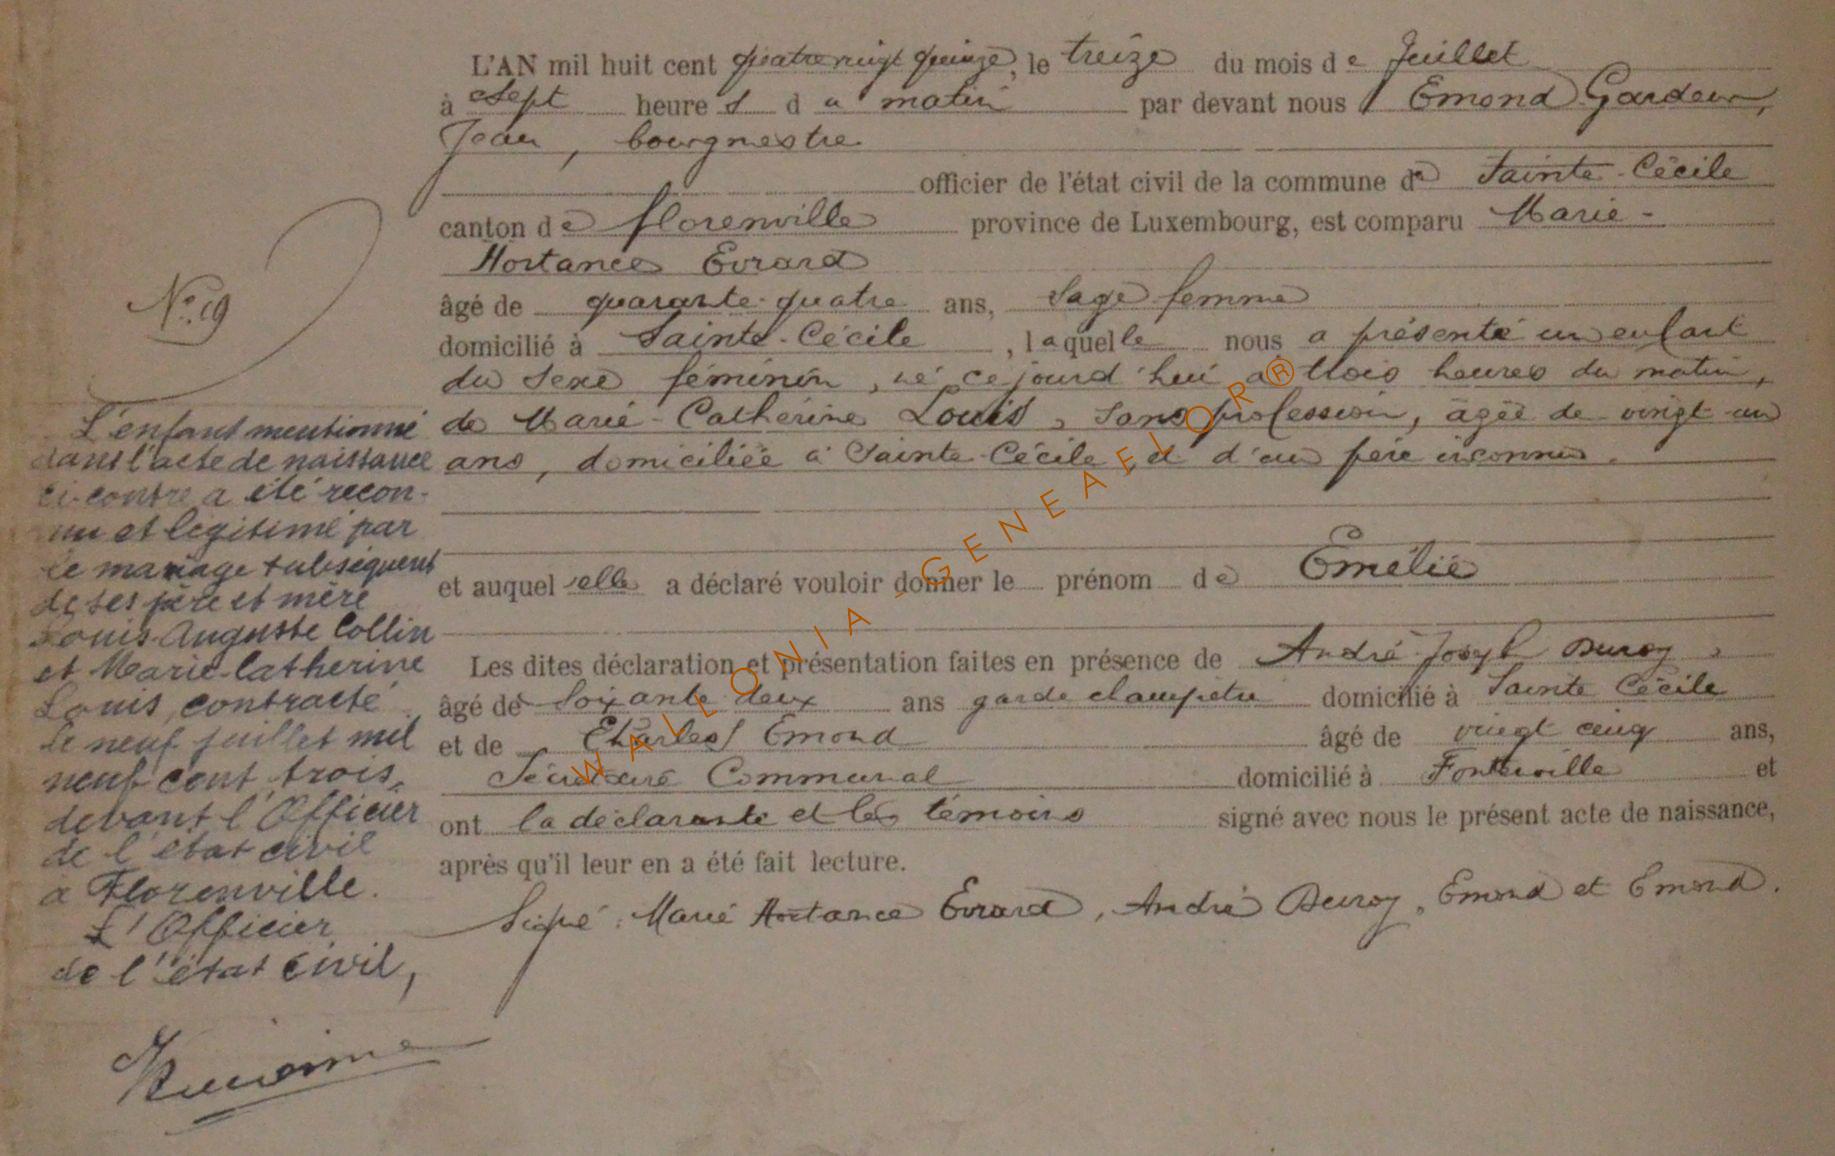 L'AN mil huit cent quatre vingt quinze, le treize du mois de Juillet
à sept heure s du matin par devant nous Emond Gardeur,
Jean, bourgmestre
officier de l'état civil de la commune de Sainte-Cécile
canton de Florenville province de Luxembourg, est comparu Marie-
Hortance Evrard
âgé de quarante-quatre ans, Sage femme
domicilié à Sainte-Cécile, laquelle nous a présenté un enfant
du sexe féminin, né ce jourd'hui à trois heures du matin,
de Marie-Catherine Louis, sans profession, âgée de vingt-un
ans, domiciliée à Sainte-Cécile et d'un père inconnu.
et auquel elle a déclaré vouloir donner le prénom de Emélie
Les dites déclaration et présentation faites en présence de André-Joseph Duroy,
âgé de Soixante deux ans garde champêtre domicilié à Sainte Cécile
et de Charles Emond âgé de vingt cinq ans,
Secrétaire Communal domicilié à Fontenoille et
ont la déclarante et les témoins signé avec nous le présent acte de naissance,
après qu'il leur en a été fait lecture.
Signé: Marie Hortance Evrard, André Duroy, Emond et Emond.
N° 19
L'enfant mentionné
dans l'acte de naissance
ci-contre a été recon-
nu et légitimé par
le mariage subséquent
de ses père et mère
Louis-Auguste Collin
et Marie-Catherine
Louis, contracté
le neuf juillet mil
neuf cent trois,
devant l'Officier
de l'état civil
à Florenville.
L'Officier
de l'état civil,
WALLONIA-GENEAFLOR®